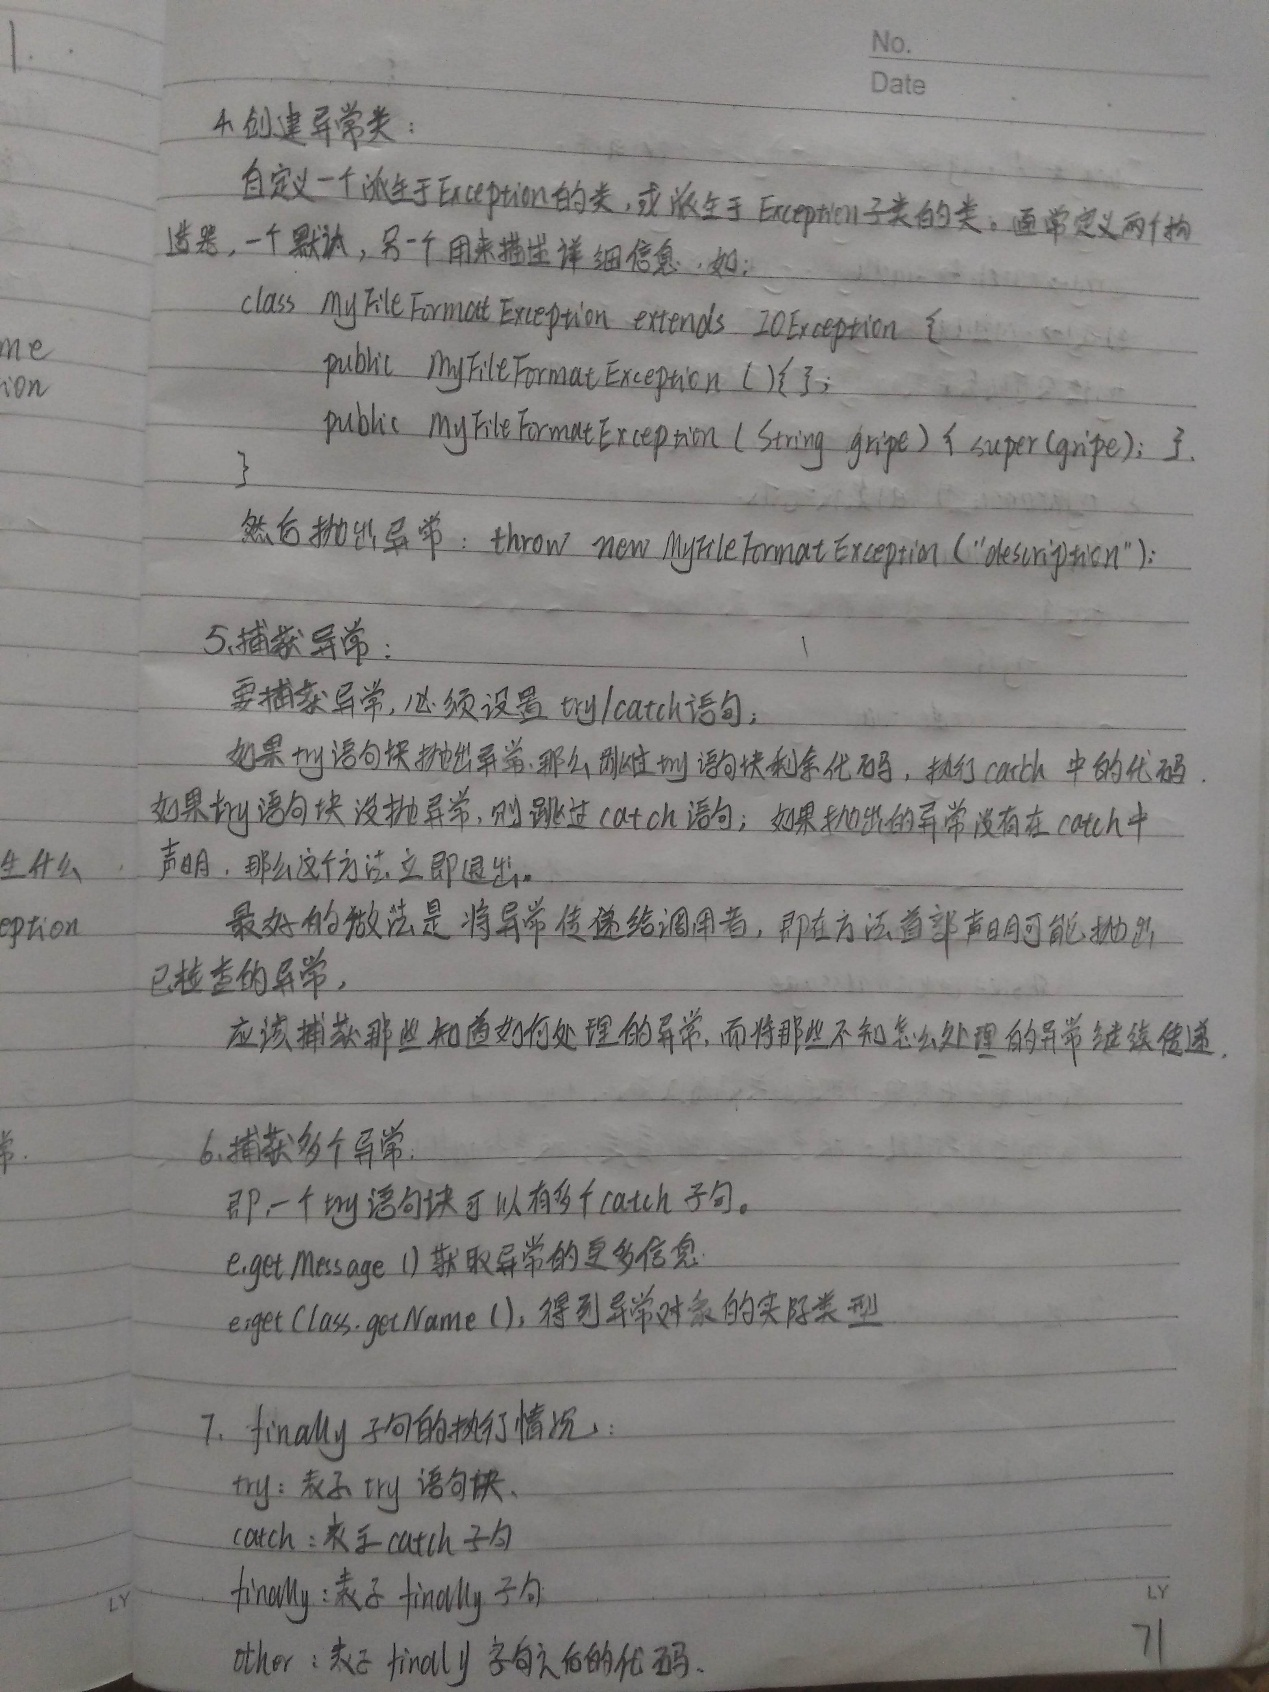 No.
Date
4.创建异常类：
自定义一个派生于Exception的类，或派生于Exception子类的类。通常定义两个构
造器，一个默认，另一个用来描述详细信息．如：
class MyFileFormatException extends IOException {
public MyFileFormatException (){};
public MyFileFormatException (String gripe) { super(gripe); }.
}
然后抛出异常：throw new MyFileFormatException ("description");
5.捕获异常：
要捕获异常，必须设置try/catch语句；
如果try语句块抛出异常，那么跳过try语句块剩余代码，执行catch 中的代码．
如果try语句块没抛异常，则跳过catch语句；如果抛出的异常没有在catch中
声明，那么这个方法立即退出。
最好的做法是将异常传递给调用者，即在方法首部声明可能抛出
已检查的异常，
应该捕获那些知道如何处理的异常，而将那些不知怎么处理的异常继续传递．
6.捕获多个异常.
即一个try语句块可以有多个catch子句。
e.getMessage () 获取异常的更多信息.
e.getClass.getName ()，得到异常对象的实际类型
7. finally子句的执行情况：
try：表示try 语句块、
catch：表示catch子句
finally：表示 finally子句
other：表示 finally 字句之后的代码．
LY
71
me
ion
生什么
eption
常.
LY